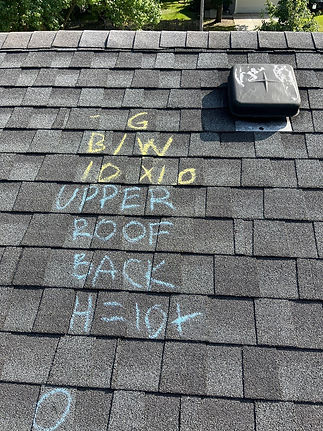 - G
B/W
10 X10
UPPER
ROOF
BACK
H=10+
O